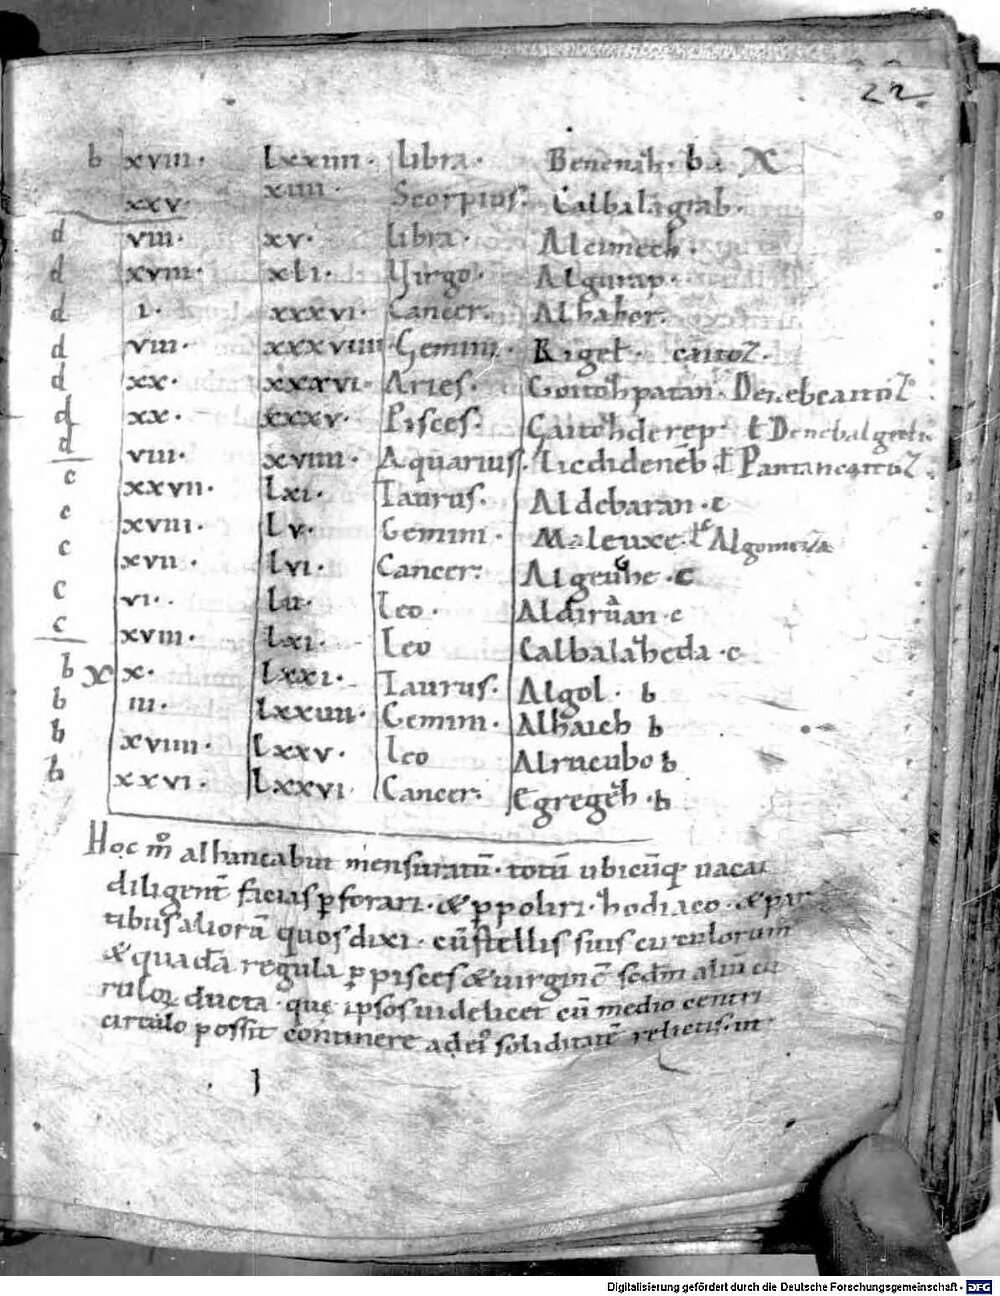 22
b xviii. Lxxiiii. Libra. Benenah. b. X
xxv. xiiii. Scorpius. Calbalagrab.
d viii. xv. Libra. Aleimech.
d xviii. xli. Virgo. Algurap.
d i. xxxvi. Cancer. Alhabor.
d viii. xxxviiii. Gemini. Rigel.
d xx. xxxvi. Aries.
d xx. xxxv. Pisces.
d viii. xviiii. Aquarius.
c xxvii. Lxi. Taurus. Aldebaran. c
c xviii. Lv. Gemini.
c xvii. Lvi. Cancer. Algeuhe. c
c vi. Lii. Leo. Aldiruan. c
c xviii. Lxi. Leo Calbalaheda. c
b X x. Lxxi. Taurus. Algol. b
b iii. Lxxiiii. Gemini. Alhaich b
b xviiii. Lxxv. Leo Alrucubo b
b xxvi. Lxxvi Cancer. Egregeh. b
Hoc m̊ alhancabut mensuratū. totū ubicūq; uacat
diligent̄ facias ꝑforari. & ꝑpoliri. hodiaco. & par
tibus aliorū quos dixi. cū stellis suis circulorum
& quadā regula ꝑ pisces & uirginē scdm aliū cir
culoꝝ ducta. que ipsos uidelicet cū medio centri
circulo possit continere ad ei᷒ soliditatē relictis. in
Digitalisierung gefördert durch die Deutsche Forschungsgemeinschaft - DFG